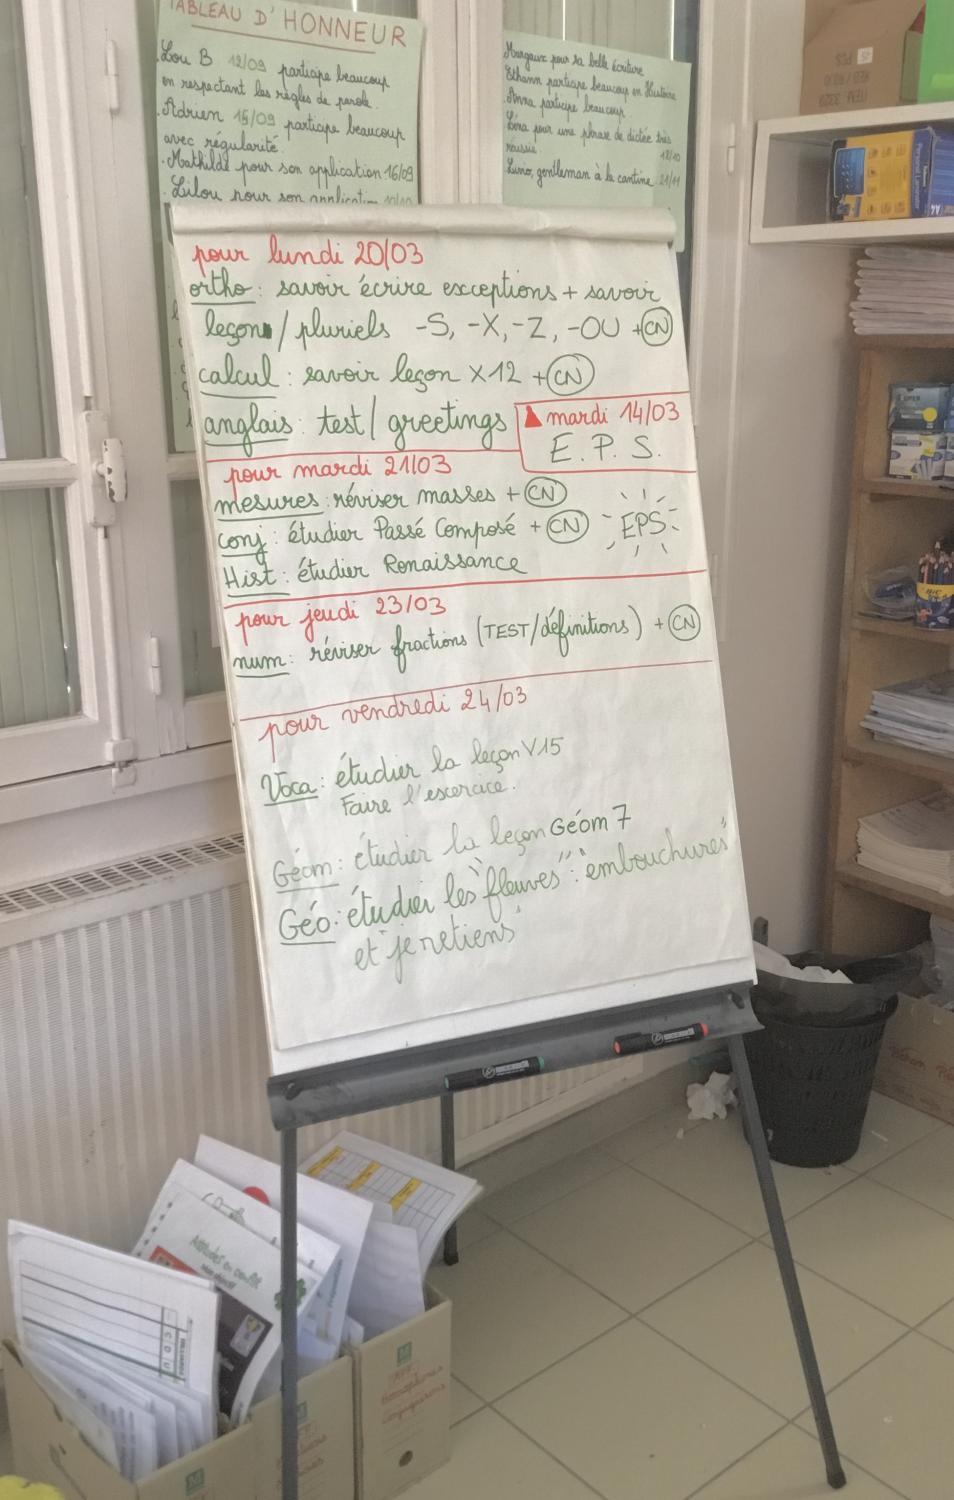 TABLEAU D'HONNEUR
Lou B 12/09 participe beaucoup
en respectant les règles de parole.
Adrien 15/09 participe beaucoup
avec régularité.
Mathilde pour son application 16/09
Lilou pour son application
Margaux pour sa belle écriture
Ethann participe beaucoup en Histoire
Anna participe beaucoup
Léna pour une phrase de dictée très
réussie
Livio, gentleman à la cantine 21/11
pour lundi 20/03
ortho : savoir écrire exceptions + savoir
leçon / pluriels -S, -X, -Z, -OU + CN
calcul : savoir leçon X12 + CN
anglais : test / greetings
mardi 14/03
E.P.S.
pour mardi 21/03
mesures : réviser masses + CN
conj : étudier Passé Composé + CN
EPS
Hist : étudier Renaissance
pour jeudi 23/03
num : réviser fractions (TEST/définitions) + CN
pour vendredi 24/03
Voca : étudier la leçon V15
Faire l'escercice.
Géom : étudier la leçon Géom 7
Géo : étudier les "fleuves" : "embouchures"
et "je retiens"